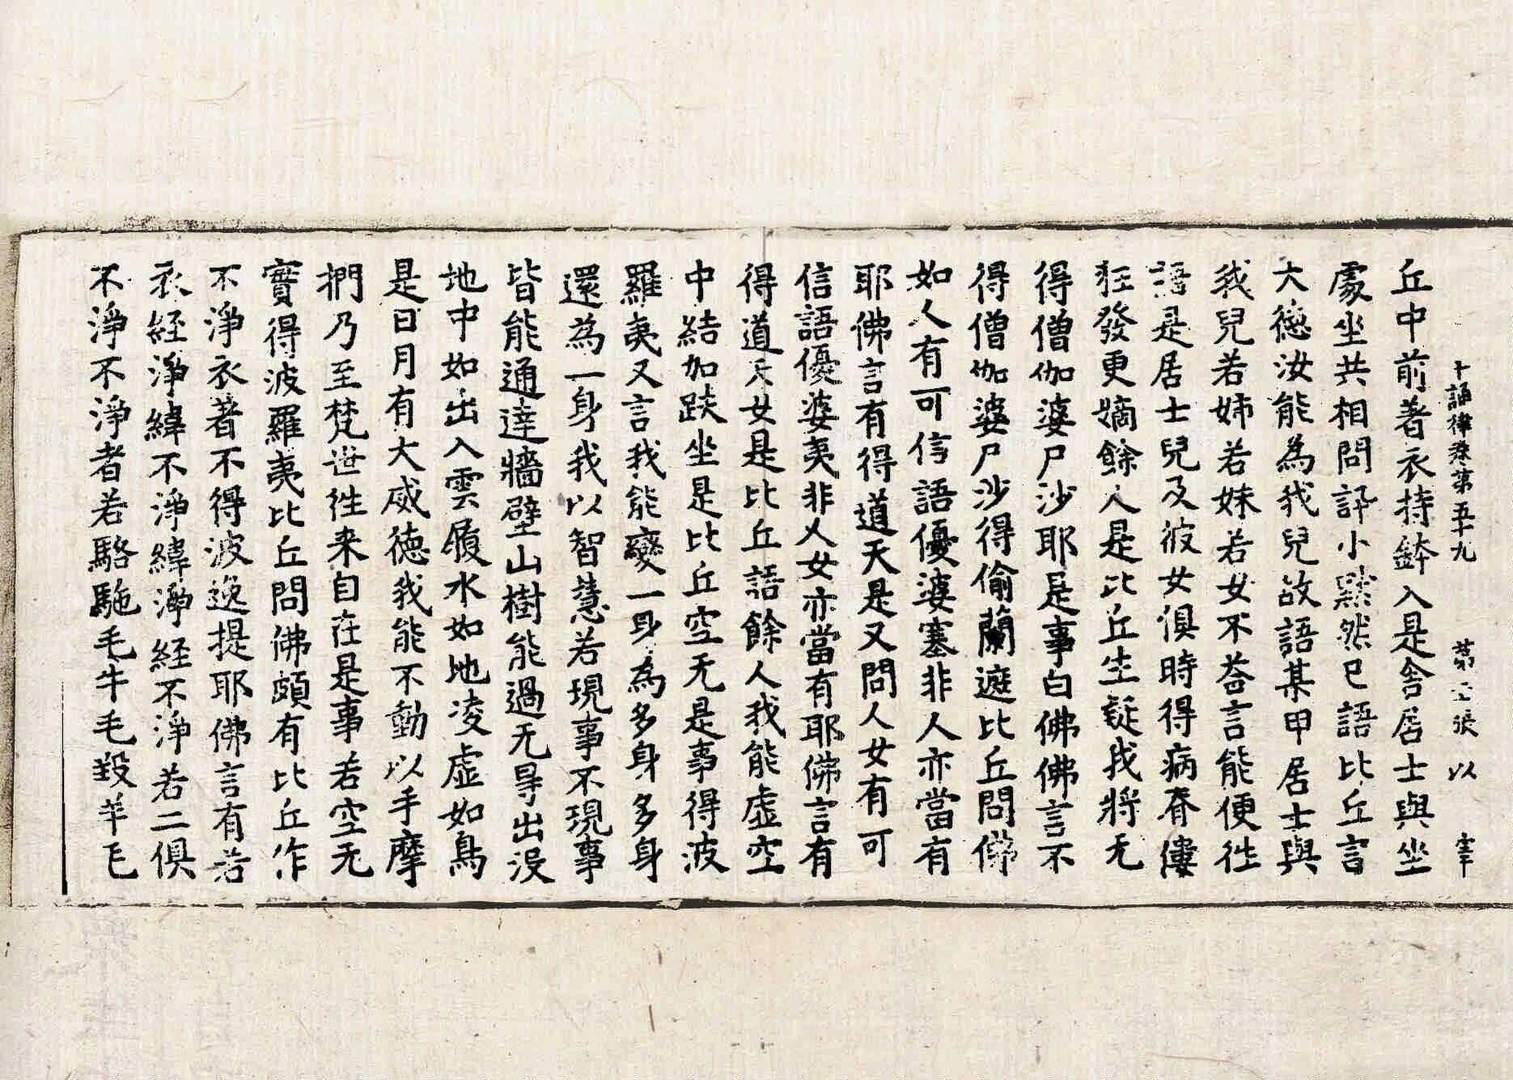 十誦律卷第五十九 第二張 以 字
丘中前著衣持鉢入是舍居士與坐
處坐共相問訊小默然已語比丘言
大德汝能為我兒故語某甲居士與
我兒若姉若妹若女不荅言能便往
語是居士兒及彼女俱時得病脊僂
狂發更嫡餘人是比丘生疑我將无
得僧伽婆尸沙耶是事白佛佛言不
得僧伽婆尸沙得偷蘭遮比丘問佛
如人有可信語優婆塞非人亦當有
耶佛言有得道天是又問人女有可
信語優婆夷非人女亦當有耶佛言有
得道天女是比丘語餘人我能虛空
中結加趺坐是比丘空无是事得波
羅夷又言我能變一身為多身多身
還為一身我以智慧若現事不現事
皆能通達牆壁山樹能過无㝵出沒
地中如出入雲履水如地凌虛如鳥
是日月有大威德我能不動以手摩
捫乃至梵世徃来自在是事若空无
實得波羅夷比丘問佛頗有比丘作
不淨衣著不得波逸提耶佛言有若
衣経淨緯不淨緯淨経不淨若二俱
不淨不淨者若駱駞毛牛毛羖羊毛